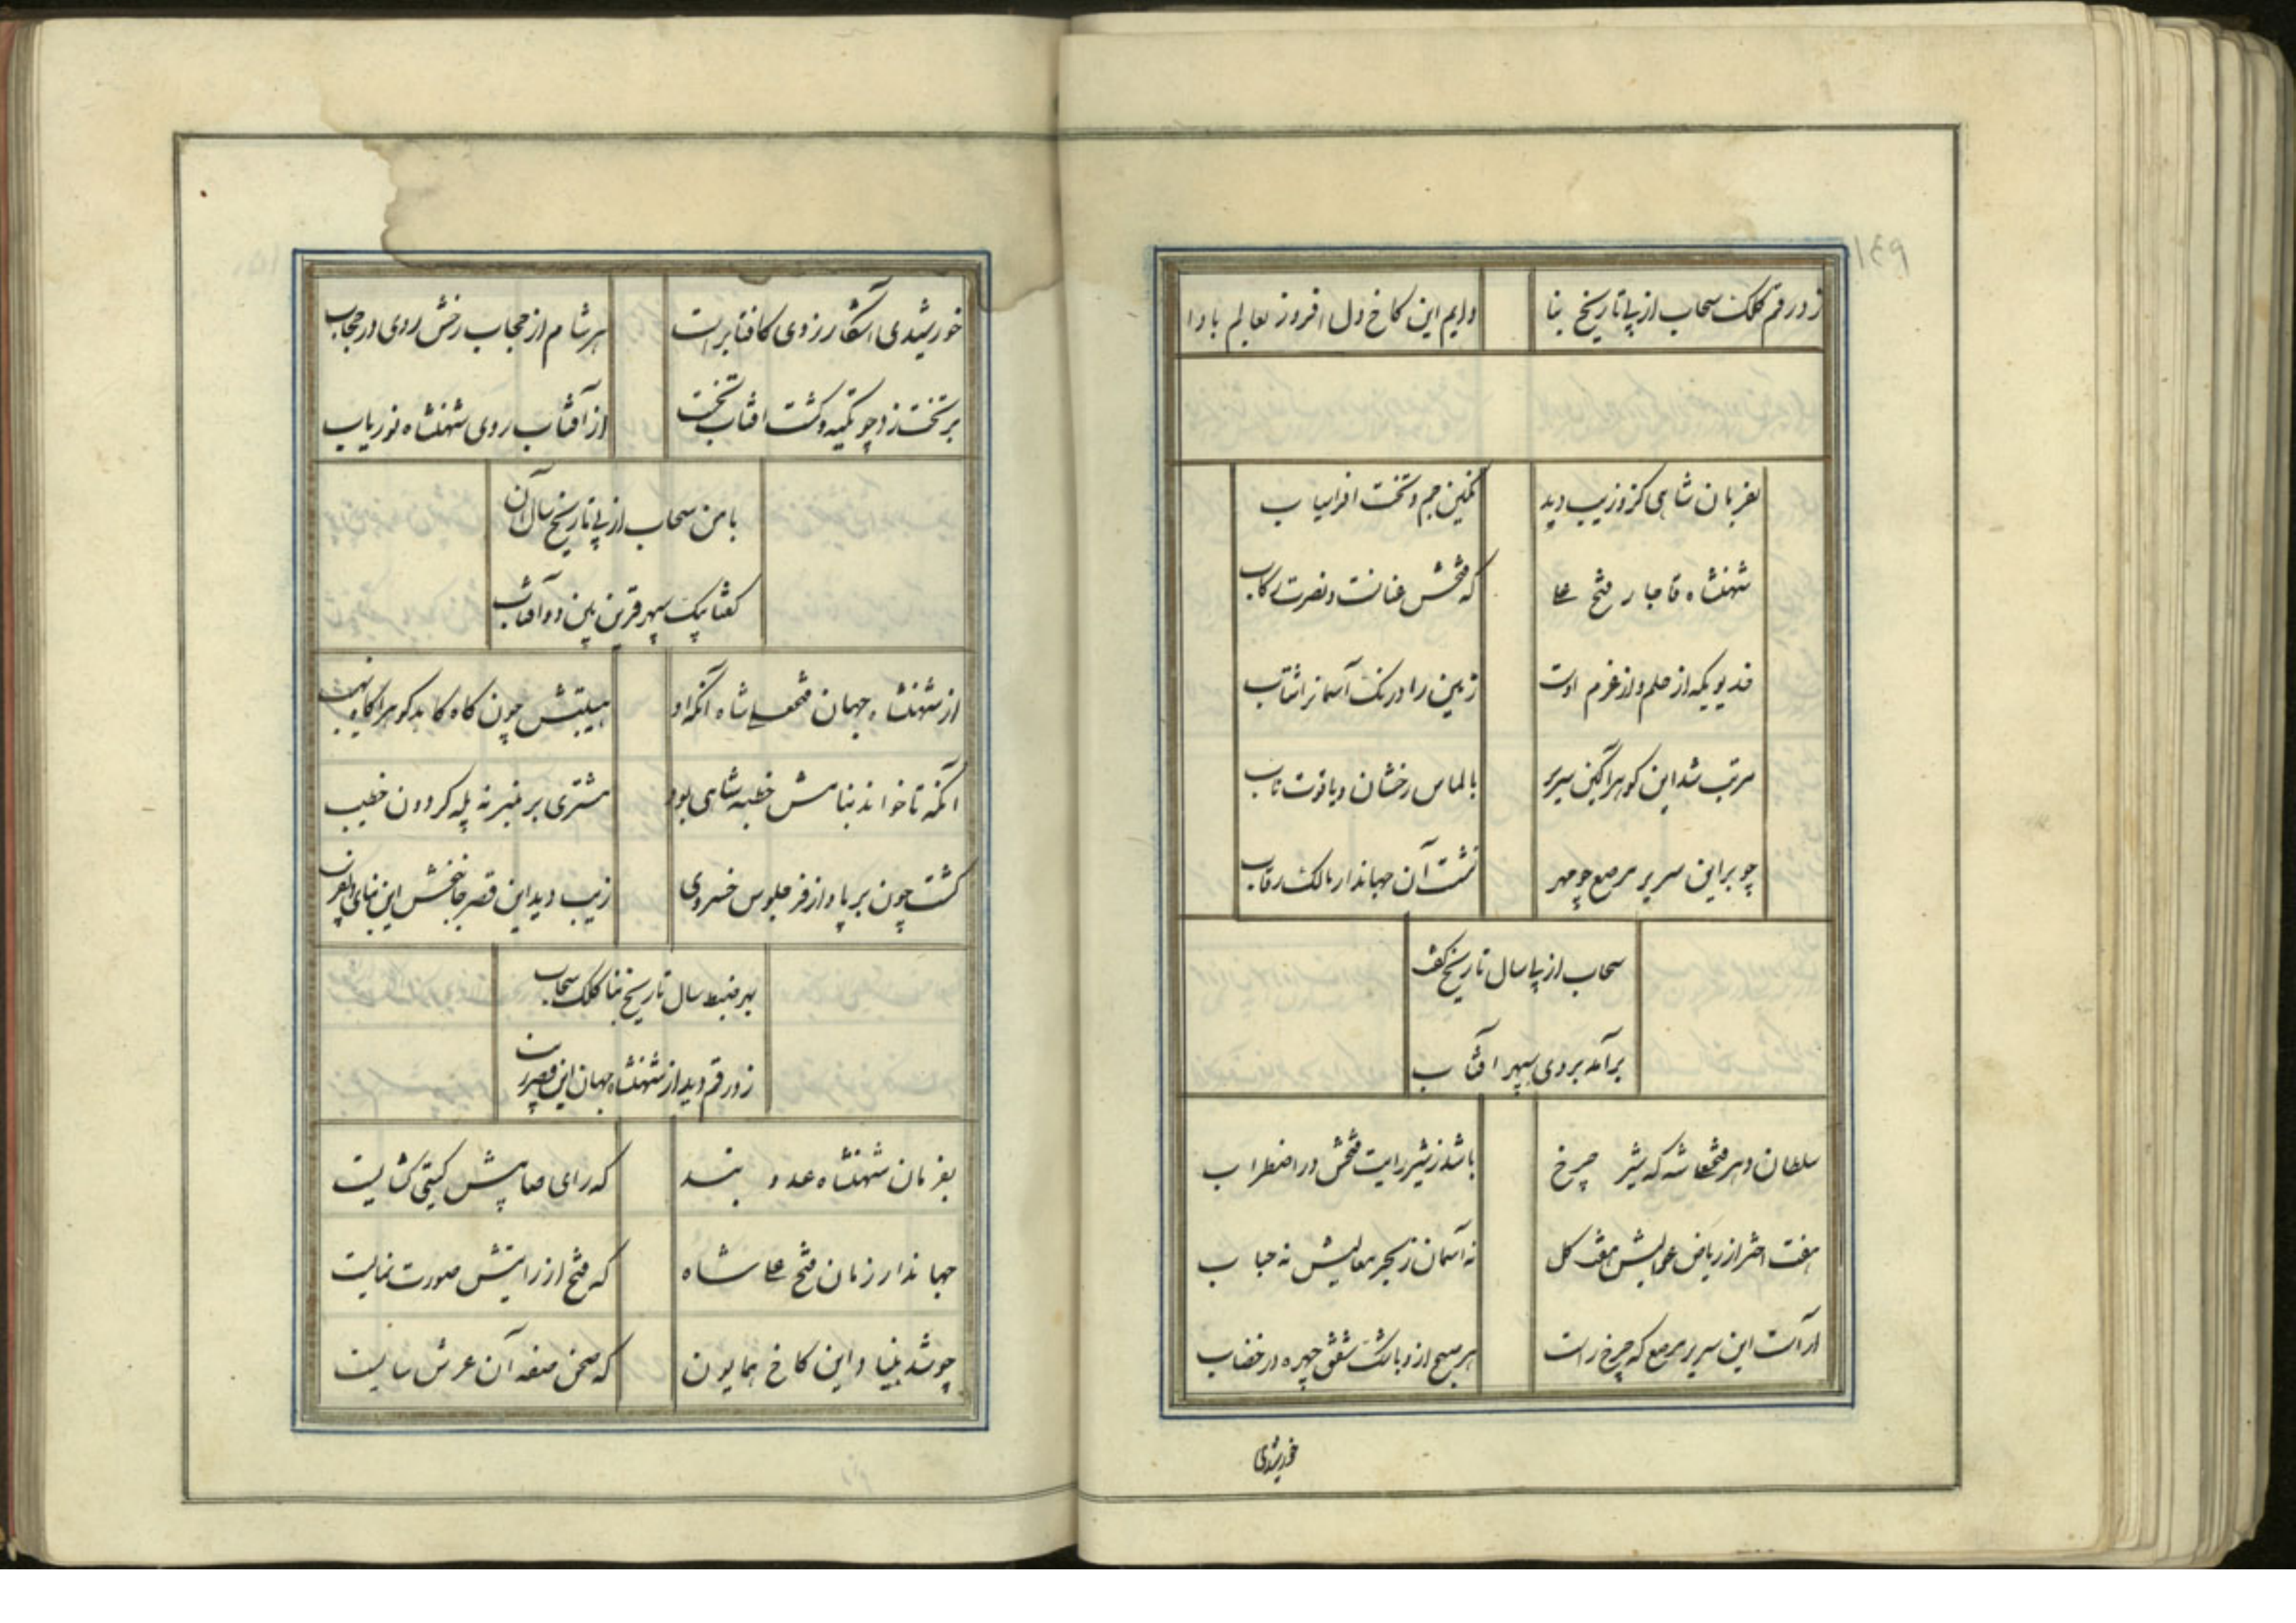 ۱۴۹
زد رقم کلک سحاب از پی تاریخ بنا دایم این کاخ دل افروز بعالم بادا
بفرمان شاهی کزو زیب دید نگین جم و تخت افراسیاب
شهنشاه قاجار فتح علی که فتحش عنانست و نصرت رکاب
خدیویکه از حلم و از عزم اوست زمین را درنک آسمانرا شتاب
مرتب شد این کوهراگین سریر بالماس رخشان و یاقوت ناب
چو بر این سریر مرصع چو مهر نشست آن جهاندار مالک رقاب
سحاب از پی سال تاریخ کفت
برآمد بروی سپهر آفتاب
سلطان دهر فتحعلی شه که شیر چرخ باشد ز شیر رایت فتحش در اضطراب
هفت اختر از ریاض عمالیش هفت کل نه آسمان ز بحر معالیش نه حباب
آراست این سریر مرصع که چرخ راست هر صبح از و باشک شفق چهره در خضاب
خورشیدی
خورشیدی آشکار ز روی کافتابراست هر شام از حجاب رخش روی در حجاب
بر تخت زد چو تکیه و کشت افتاب تخت از آفتاب روی شهنشاه نور یاب
با من سحاب از پی تاریخ سال آن
کفتا بیک سپهر قرین بین دو آفتاب
از شهنشاه جهان فتحعلی شاه آنکه او هیبتش چون کاه کاهد کوه را گاه نهیب
آنکه تا خواند بنامش خطبه شاهی بود مشتری بر منبر نه پله کردون خطیب
کشت چون بر پا و از فر جلوس خسروی زیب دید این قصر جانبخش این بنای دلفریب
بهر ضبط سال تاریخ بنا کلک سحاب
زد رقم دید از شهنشاه جهان این قصر زیب
بفرمان شهنشاه عدو بند که رای صایبش کیتی کشایست
جهاندار زمان فتح علی شاه که فتح از رایتش صورت نمایست
چو شد بنیاد این کاخ همایون که صحن صفه آن عرش سایست